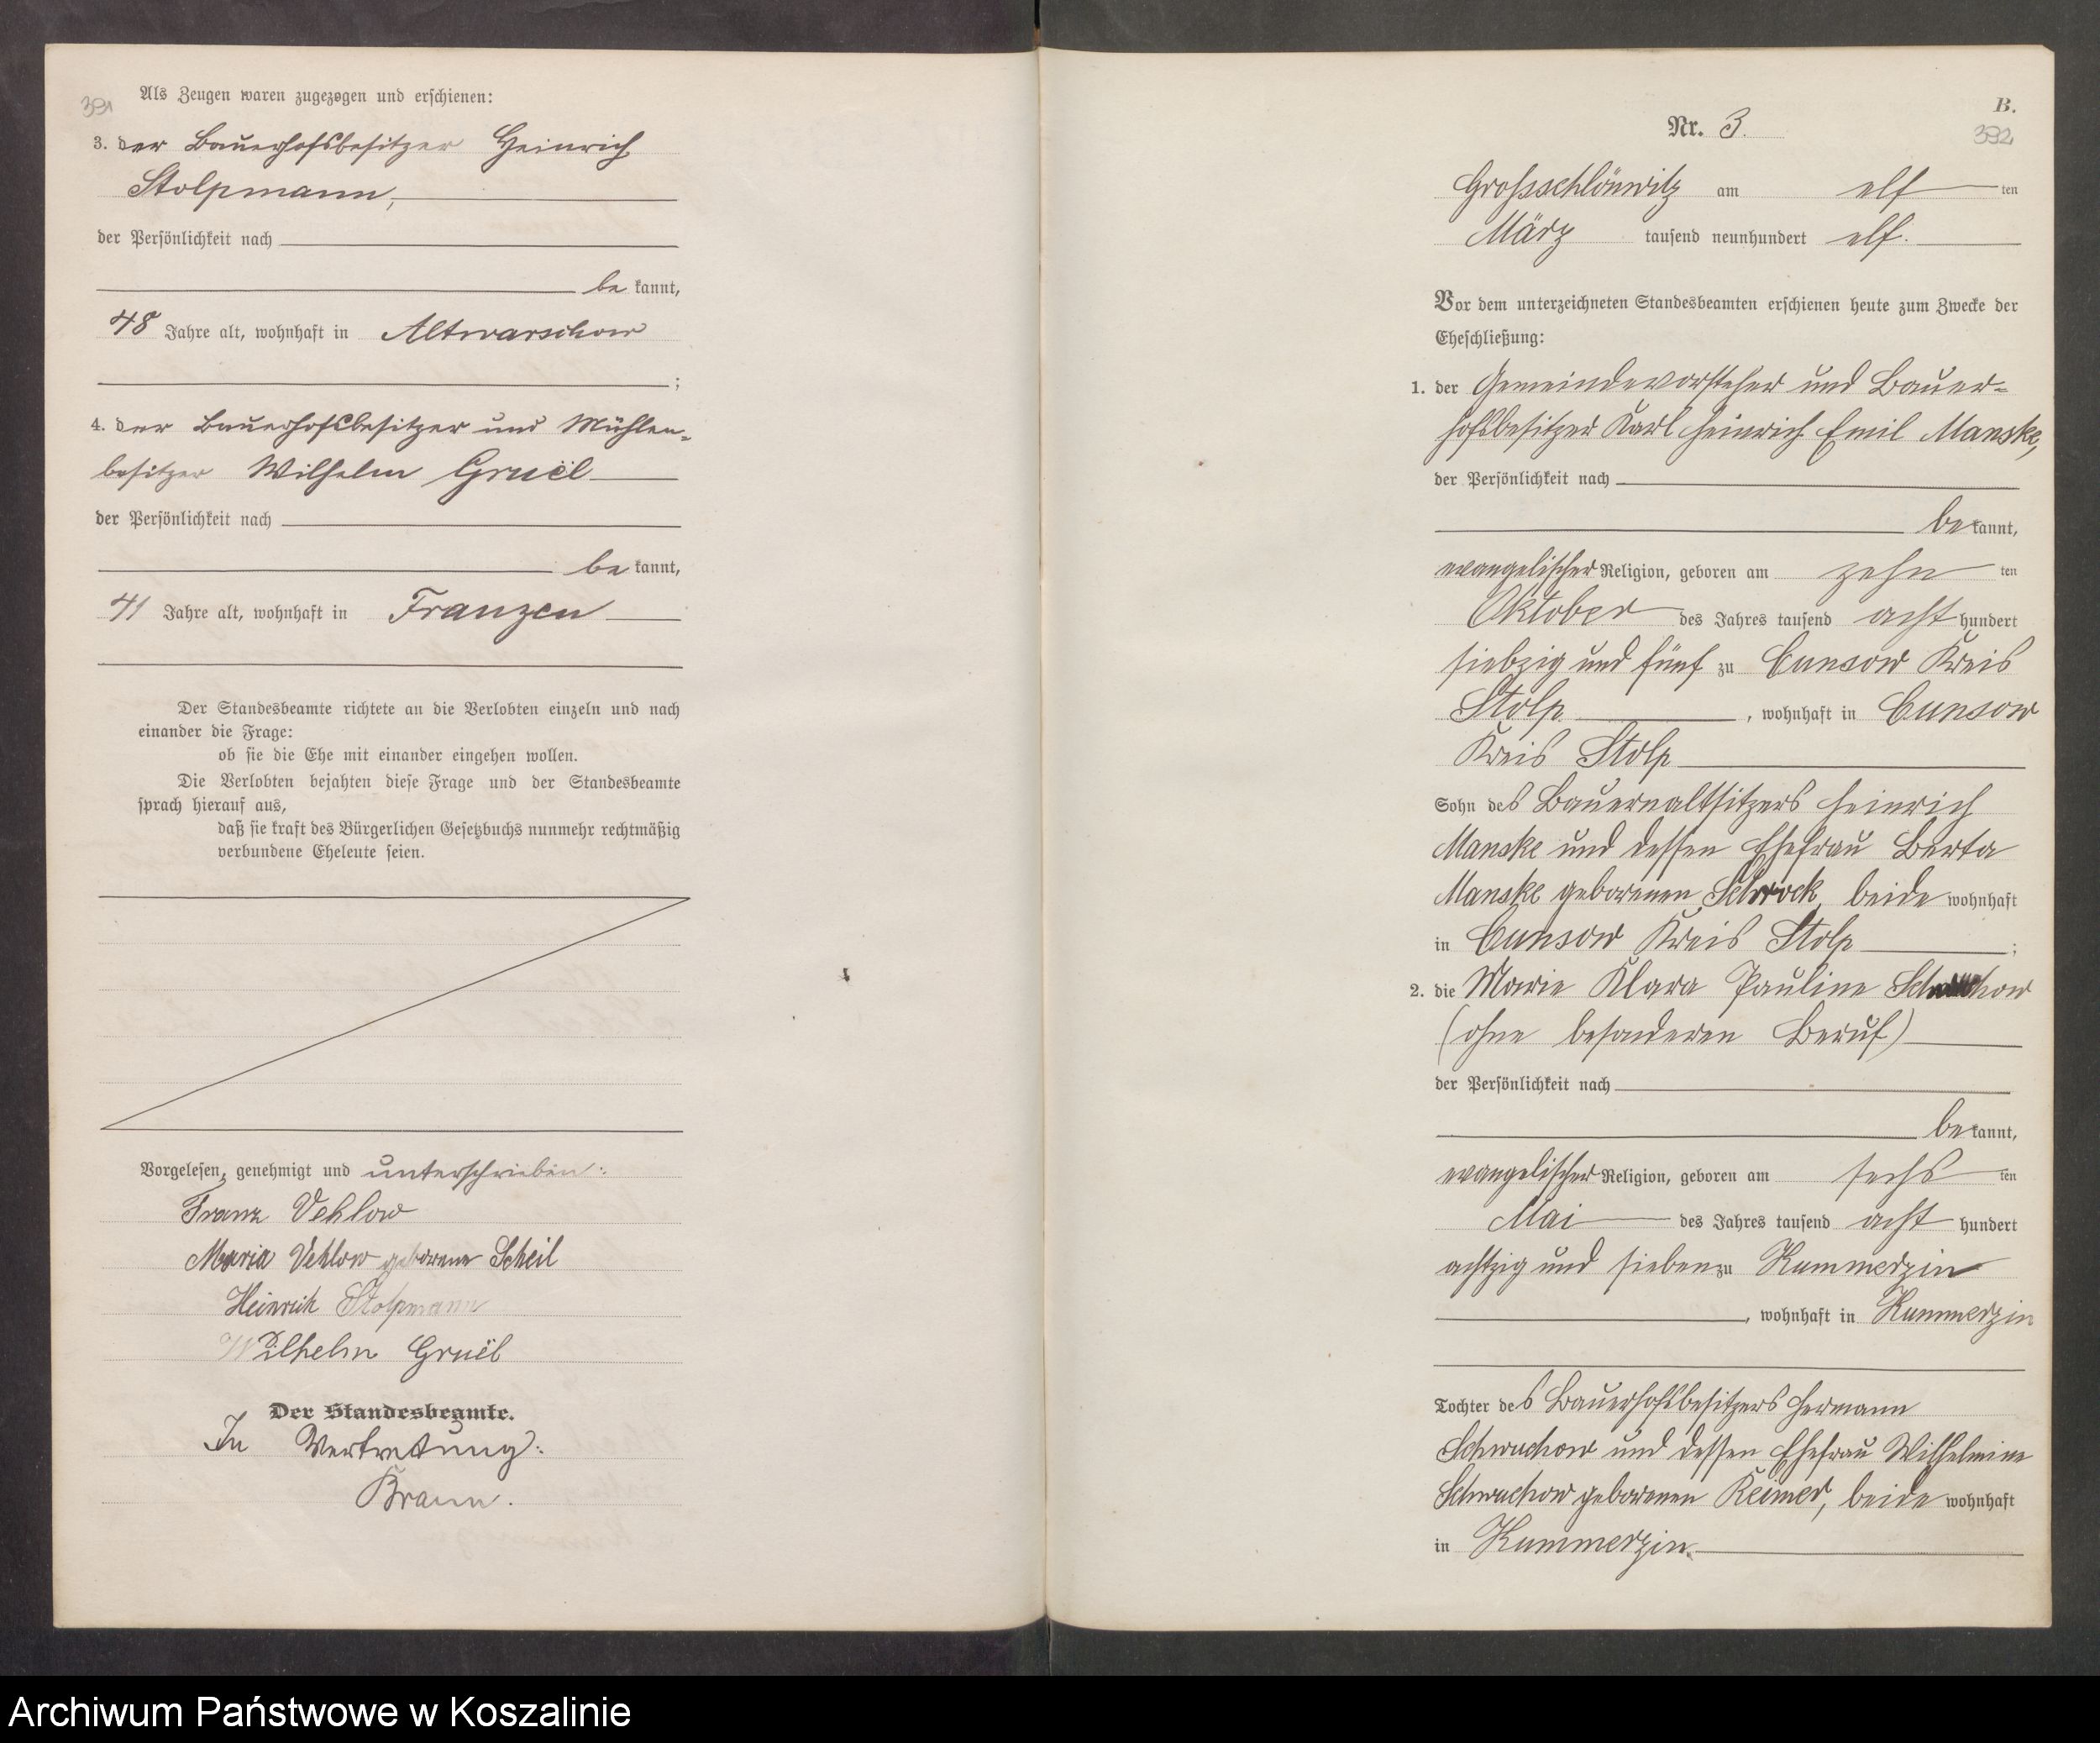 391
Als Zeugen waren zugezogen und erschienen:
3. der Bauerhofsbesitzer Heinrich
Stolpmann,
der Persönlichkeit nach
be kannt,
48 Jahre alt, wohnhaft in Altwarschow
;
4. der Bauerhofsbesitzer und Mühlen-
besitzer Wilhelm Gruël
der Persönlichkeit nach
be kannt,
41 Jahre alt, wohnhaft in Franzen
Der Standesbeamte richtete an die Verlobten einzeln und nach
einander die Frage:
ob sie die Ehe mit einander eingehen wollen.
Die Verlobten bejahten diese Frage und der Standesbeamte
sprach hierauf aus,
daß sie kraft des Bürgerlichen Gesetzbuchs nunmehr rechtmäßig
verbundene Eheleute seien.
Vorgelesen, genehmigt und unterschrieben:
Franz Vehlow
Maria Vehlow geborene Scheil
Heinrich Stolpmann
Wilhelm Gruël
Der Standesbeamte.
In Vertretung:
Braun.
B.
Nr. 3.
392
Grossschlönwitz am elf ten
März tausend neunhundert elf.
Vor dem unterzeichneten Standesbeamten erschienen heute zum Zwecke der
Eheschließung:
1. der Gemeindevorsteher und Bauer-
hofsbesitzer Karl Heinrich Emil Manske,
der Persönlichkeit nach
be kannt,
evangelischer Religion, geboren am zehn ten
Oktober des Jahres tausend acht hundert
siebzig und fünf zu Cunsow Kreis
Stolp, wohnhaft in Cunsow
Kreis Stolp
Sohn des Bauernaltsitzers Heinrich
Manske und dessen Ehefrau Berta
Manske geborenen Schrock, beide wohnhaft
in Cunsow Kreis Stolp ;
2. die Marie Klara Pauline Schwuchow
(ohne besonderen Beruf)
der Persönlichkeit nach
be kannt,
evangelischer Religion, geboren am sechs ten
Mai des Jahres tausend acht hundert
achtzig und sieben zu Kummerzin
, wohnhaft in Kummerzin
Tochter des Bauerhofsbesitzers Hermann
Schwuchow und dessen Ehefrau Wilhelmine
Schwuchow geborenen Reimer, beide wohnhaft
in Kummerzin.
Archiwum Państwowe w Koszalinie